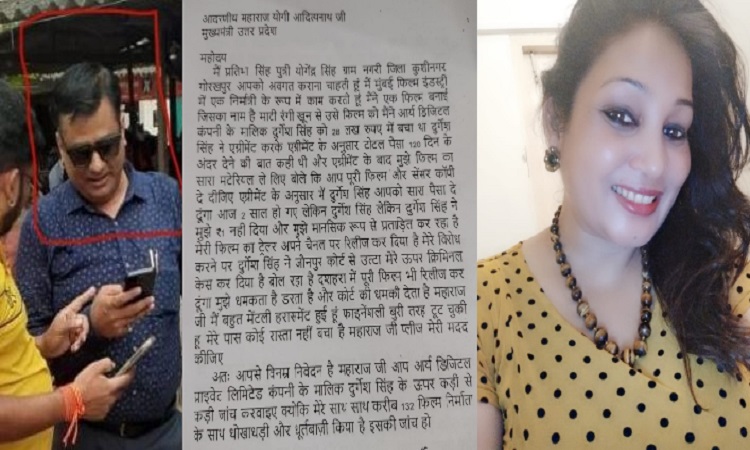 आदरणीय महाराज योगी आदित्यनाथ जी
मुख्यमंत्री उत्तर प्रदेश
महोदय
मैं प्रतिभा सिंह पुत्री योगेंद्र सिंह ग्राम नगरी जिला कुशीनगर
गोरखपुर आपको अवगत कराना चाहती हूं मैं मुंबई फिल्म इंडस्ट्री
में एक निर्मात्री के रूप में काम करते हूं मैंने एक फिल्म बनाई
जिसका नाम है माटी रंगी खून से उसे फिल्म को मैंने आर्य डिजिटल
कंपनी के मालिक दुर्गेश सिंह को 28 लाख रुपए में बेचा था दुर्गेश
सिंह ने एग्रीमेंट करके एग्रीमेंट के अनुसार टोटल पैसा 120 दिन के
अंदर देने की बात कही थी और एग्रीमेंट के बाद मुझे फिल्म का
सारा मटेरियल ले लिए बोले कि आप पूरी फिल्म और सेंसर कॉपी
दे दीजिए एग्रीमेंट के अनुसार में दुर्गेश सिंह आपको सारा पैसा दे
दूंगा आज 2 साल हो गए लेकिन दुर्गेश सिंह लेकिन दुर्गेश सिंह ने
मुझे ₹1 नहीं दिया और मुझे मानसिक रूप से प्रताड़ित कर रहा है
मेरी फिल्म का ट्रेलर अपने चैनल पर रिलीज कर दिया है मेरे विरोध
करने पर दुर्गेश सिंह ने जौनपुर कोर्ट से उल्टा मेरे ऊपर क्रिमिनल
केस कर दिया है बोल रहा है दशहरा में पूरी फिल्म भी रिलीज कर
दूंगा मुझे धमकता है डरता है और कोर्ट की धमकी देता है महाराज
जी में बहुत मेंटली हरासमेंट हुई हूं फाइनेंशली बुरी तरह टूट चुकी
हूं मेरे पास कोई रास्ता नहीं बचा है महाराज जी प्लीज मेरी मदद
कीजिए
अतः आपसे विनम्र निवेदन है महाराज जी आप आर्य डिजिटल
प्राइवेट लिमिटेड कंपनी के मालिक दुर्गेश सिंह के ऊपर कड़ी से
कड़ी जांच करवाइए क्योंकि मेरे साथ साथ करीब 132 फिल्म निर्माता
के साथ धोखाधड़ी और धूर्तबाजी किया है इसकी जांच हो